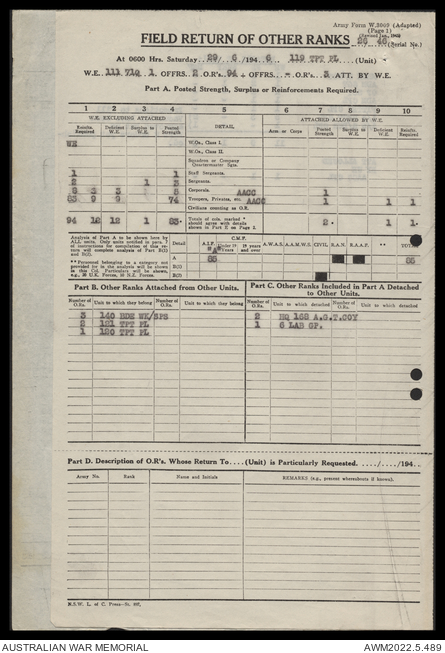 Army Form W.3009 (Adapted)
(Page 1)
FIELD RETURN OF OTHER RANKS 26 46 (Serial No.)
At 0600 Hrs. Saturday 29 / 6 /194 6 119 TPT PL (Unit)
W.E. 111 710 1. OFFRS. 2 O.R's. 94 + OFFRS. - O.R's. 3 ATT. BY W.E.
Part A. Posted Strength, Surplus or Reinforcements Required.
1 2 3 4 5 6 7 8 9 10
W.E. EXCLUDING ATTACHED ATTACHED ALLOWED BY W.E.
Reinfts. Required Deficient W.E. Surplus to W.E. Posted Strength DETAIL Arm or Corps Posted Strength Surplus to W.E. Deficient W.E. Reinfts. Required
WE W.Os., Class I.
W.Os., Class II.
Squadron or Company Quartermaster Sgts.
1 1 Staff Sergeants.
2 1 3 Sergeants.
8 3 3 5 Corporals. AACC 1
83 9 9 74 Troopers, Privates, etc. AACC 1 1 1
Civilians counting as O.R.
94 12 12 1 83 Totals of cols. marked * should agree with details shown in Part E, on Page 2. 2 1 1
Analysis of Part A to be shown here by ALL units. Only units notified in para. 7 of instructions for compilation of this return will complete analysis of Part B(G) and B(S).
** Personnel belonging to a category not provided for in the analysis will be shown in this Col. Particulars will be shown, e.g., 20 U.K. Forces, 10 N.Z. Forces.
Detail A.I.F. C.M.F. Under 19 19 years and over A.W.A.S. A.A.M.W.S. CIVIL. R.A.N. R.A.A.F. **
A 85 85
B(G)
B(S)
Part B. Other Ranks Attached from Other Units.
Part C. Other Ranks Included in Part A Detached to Other Units.
Number of O.Rs. Unit to which they belong Number of O.Rs. Unit to which they belong Number of O.Rs. Unit to which detached Number of O.Rs. Unit to which detached
3 140 BDE WK/SPS 2 HQ 168 A.G.T.COY
2 121 TPT PL 1 6 LAB GP.
1 120 TPT PL
Part D. Description of O.R's. Whose Return To....(Unit) is Particularly Requested. ..../..../194...
Army No. Rank Name and Initials REMARKS (e.g., present whereabouts if known).
AUSTRALIAN WAR MEMORIAL AWM2022.5.489